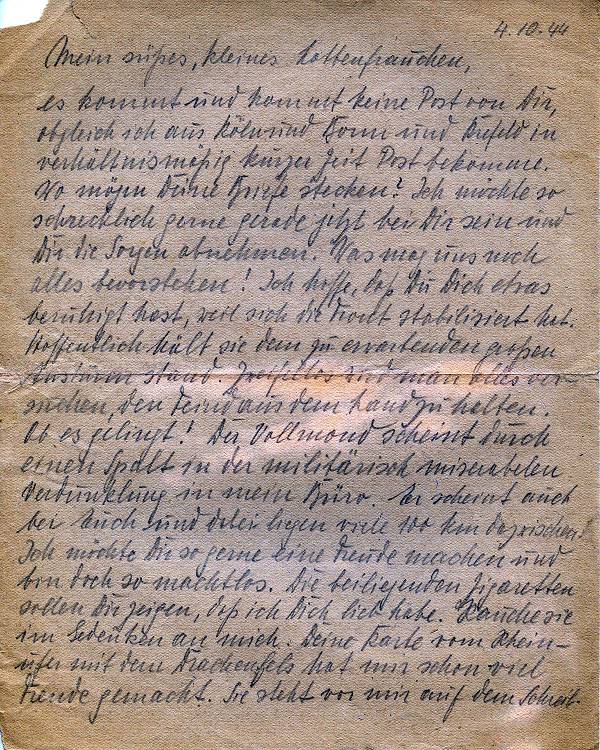 4.10.44
Mein süßes, kleines Lottenfrauchen,
es kommt und kommt keine Post von Dir,
obgleich ich aus Köln und Bonn und Krefeld in
verhältnismäßig kurzer Zeit Post bekomme.
Wo mögen Deine Briefe stecken? Ich möchte so
schrecklich gerne gerade jetzt bei Dir sein und
Dir die Sorgen abnehmen. Was mag uns noch
alles bevorstehen! Ich hoffe, daß Du Dich etwas
beruhigt hast, weil sich die Front stabilisiert hat.
Hoffentlich hält sie dem zu erwartenden großen
Ansturm stand. Zweifellos wird man alles ver-
suchen, den Feind aus dem Land zu halten.
Ob es gelingt! Der Vollmond scheint durch
einen Spalt in der militärisch miserabelen
Verdunklung in mein Büro. Er scheint auch
bei Euch und dabei liegen viele 100 km dazwischen!
Ich möchte Dir so gerne eine Freude machen und
bin doch so machtlos. Die beiliegenden Zigaretten
sollen Dir zeigen, daß ich Dich lieb habe. Rauche sie
im Gedenken an mich. Deine Karte vom Rhein-
ufer mit dem Drachenfels hat mir schon viel
Freude gemacht. Sie steht vor mir auf dem Schreib-